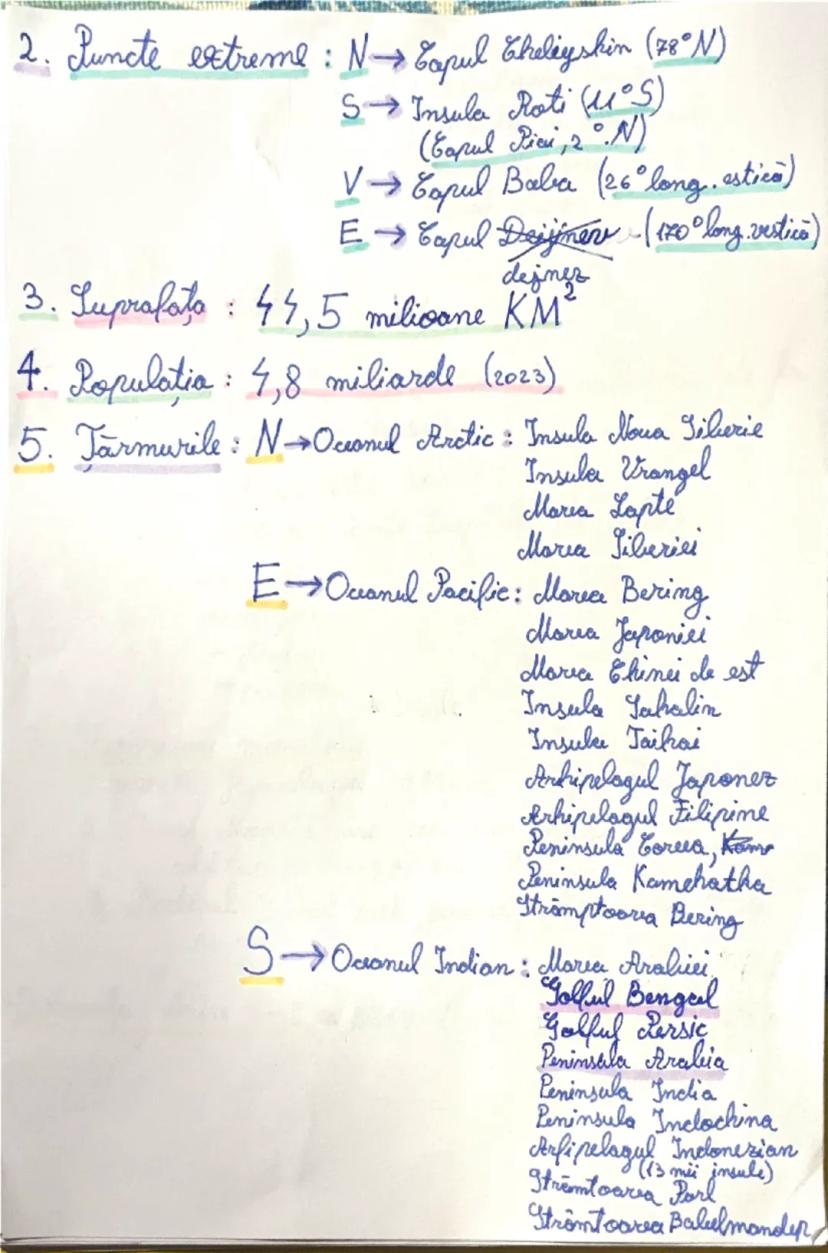 2. Puncte extreme : N → Capul Cheleyskin (78°N)
S → Insula Roti (11°S)
(Capul Piai, 2°.N)
V → Capul Baba (26°long. estică)
E → Capul Dejnev (170°long.vestică)
dejnez
3. Suprafața : 44,5 milioane KM²
4. Populația : 4,8 miliarde (2023)
5. Țărmurile : N → Oceanul Arctic : Insula Noua Siberie
Insula Vrangel
Marea Lapte
Marea Siberiei
E → Oceanul Pacific : Marea Bering
Marea Japoniei
Marea Chinei de est
Insula Sahalin
Insula Taihai
Arhipelagul Japonez
Arhipelagul Filipine
Peninsula Coreea, Kam
Peninsula Kamchatha
Strâmptoarea Bering
S → Oceanul Indian : Marea Arabiei
Golful Bengal
Golful Persic
Peninsula Arabia
Peninsula India
Peninsula Indochina
Arhipelagul Indonezian
(13 mii insule)
Strâmtoarea Parl
Strâmtoarea Babelmandep